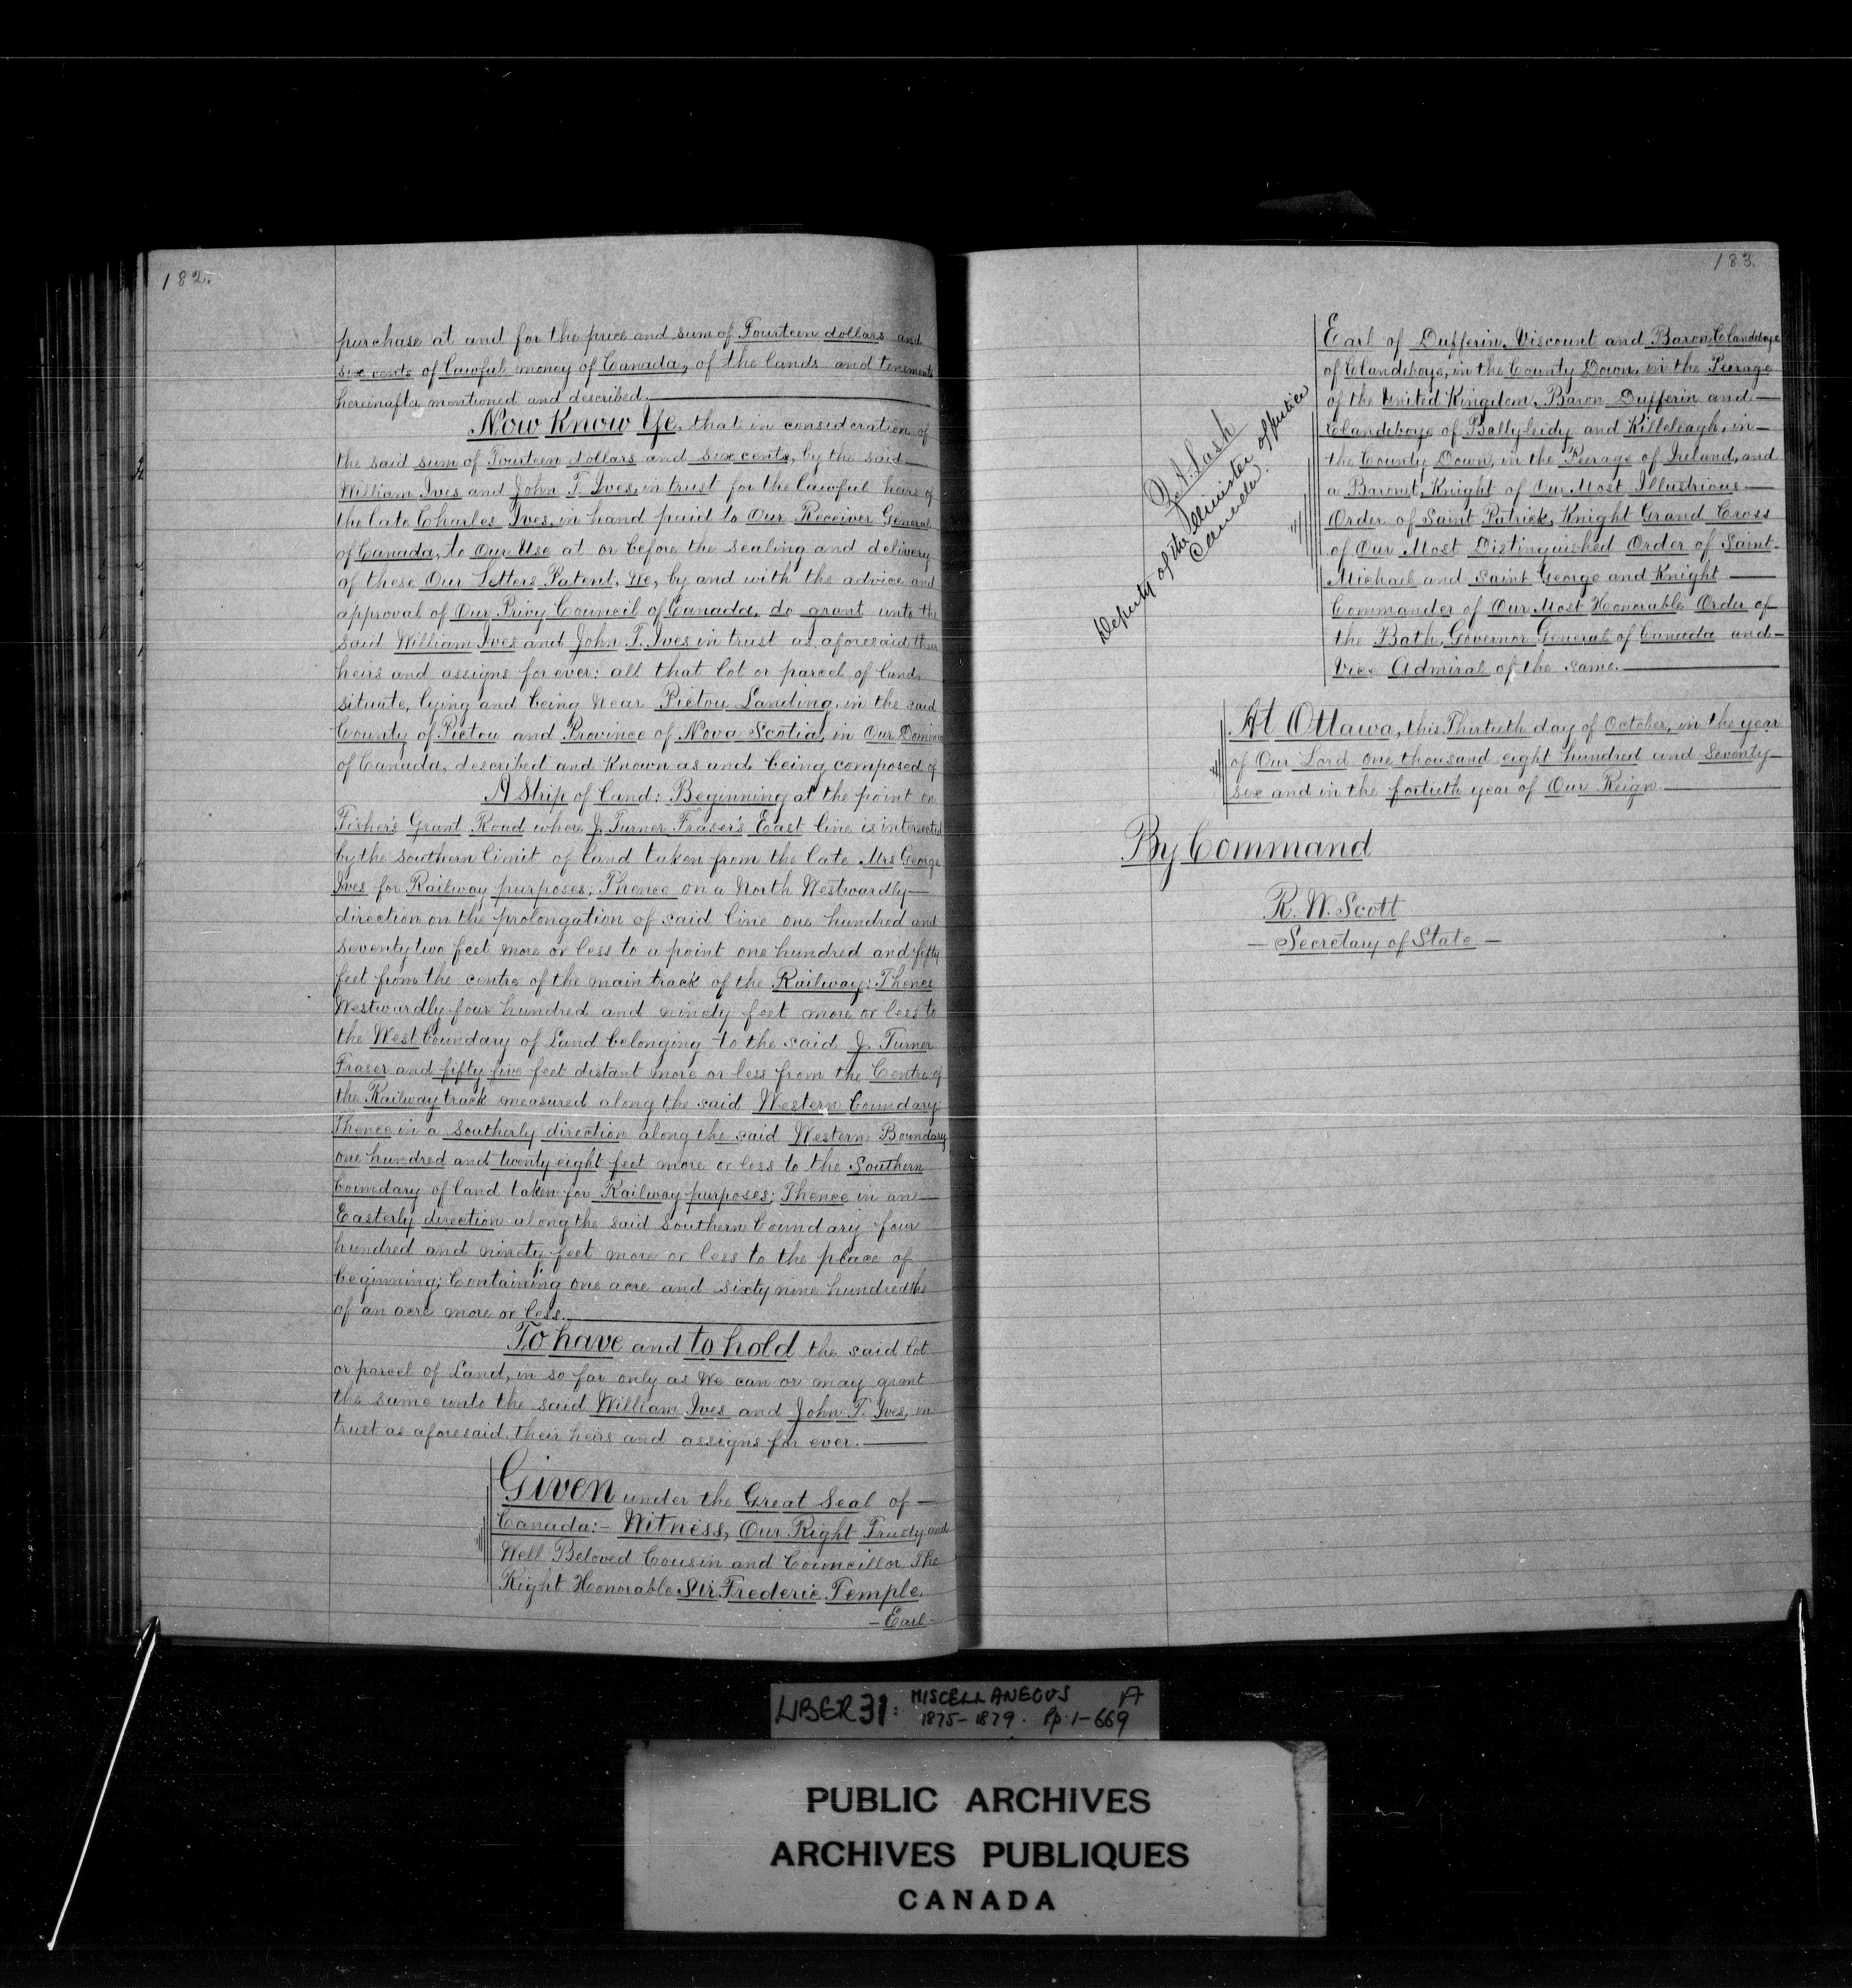 182.
purchase at and for the price and sum of Fourteen dollars and
six cents of lawful money of Canada, of the lands and tenements
hereinafter mentioned and described.
Now Know Ye, that in consideration of
the said sum of Fourteen dollars and six cents, by the said
William Ives and John T. Ives, in trust for the lawful heirs of
the late Charles Ives, in hand paid to Our Receiver General
of Canada, to Our Use at or before the sealing and delivery
of these Our Letters Patent, We, by and with the advice and
approval of Our Privy Council of Canada, do grant unto the
said William Ives and John T. Ives in trust as aforesaid their
heirs and assigns for ever: all that lot or parcel of land
situate, lying and being near Pictou Landing, in the said
County of Pictou and Province of Nova Scotia, in Our Dominion
of Canada, described and known as and being composed of
A Strip of land: Beginning at the point on
Fisher's Grant Road where J. Turner Fraser's East line is intersected
by the Southern limit of land taken from the late Mrs George
Ives for Railway purposes; Thence on a North Westwardly
direction on the prolongation of said line one hundred and
seventy two feet more or less to a point one hundred and fifty
feet from the centre of the main track of the Railway; Thence
Westwardly four hundred and ninety feet more or less to
the West boundary of Land belonging to the said J. Turner
Fraser and fifty five feet distant more or less from the Centre of
the Railway track measured along the said Western boundary;
Thence in a Southerly direction along the said Western Boundary
one hundred and twenty eight feet more or less to the Southern
boundary of land taken for Railway purposes; Thence in an
Easterly direction along the said Southern boundary four
hundred and ninety feet more or less to the place of
beginning; Containing one acre and sixty nine hundredths
of an acre more or less.
To have and to hold the said lot
or parcel of Land, in so far only as We can or may grant
the same unto the said William Ives and John T. Ives, in
trust as aforesaid, their heirs and assigns for ever.
Given under the Great Seal of
Canada:- Witness, Our Right Trusty and
Well Beloved Cousin and Councillor The
Right Honorable Sir Frederic Temple,
- Earl
183.
Z. A. Lash
Deputy of the Minister of Justice
Canada.
Earl of Dufferin, Viscount and Baron Clandeboye
of Clandeboye, in the County Down, in the Peerage
of the United Kingdom, Baron Dufferin and
Clandeboye of Ballyleidy and Killeleagh, in
the County Down, in the Peerage of Ireland, and
a Baronet, Knight of Our Most Illustrious
Order of Saint Patrick, Knight Grand Cross
of Our Most Distinguished Order of Saint
Michael and Saint George and Knight
Commander of Our Most Honorable Order of
the Bath, Governor General of Canada and
Vice Admiral of the same.
At Ottawa, this Thirtieth day of October, in the year
of Our Lord one thousand eight hundred and seventy
six and in the fortieth year of Our Reign
By Command
R. W. Scott
- Secretary of State -
LIBER 31: MISCELLANEOUS A
1875-1879. Pp. 1-669
PUBLIC ARCHIVES
ARCHIVES PUBLIQUES
CANADA